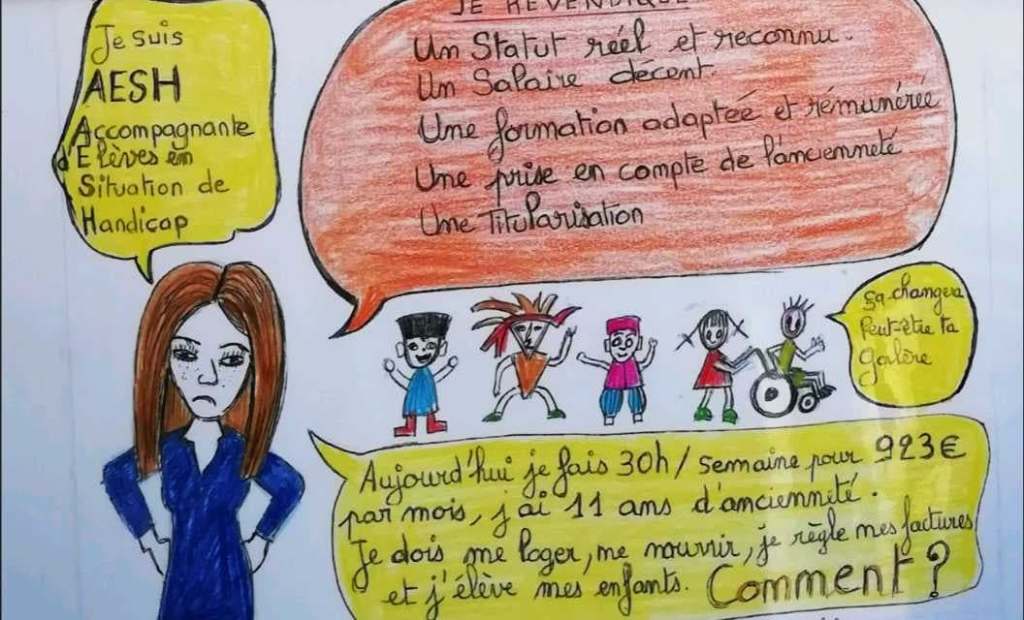 Je suis
AESH
Accompagnante
d'Elèves en
Situation de
Handicap
JE REVENDIQUE
Un Statut réel et reconnu.
Un Salaire décent.
Une formation adaptée et rémunérée
Une prise en compte de l'ancienneté
Une Titularisation
ça changera
Peut-être ta
galère
Aujourd'hui je fais 30h/semaine pour 923€
par mois, j'ai 11 ans d'ancienneté.
Je dois me loger, me nourrir, je règle mes factures
et j'élève mes enfants. Comment?